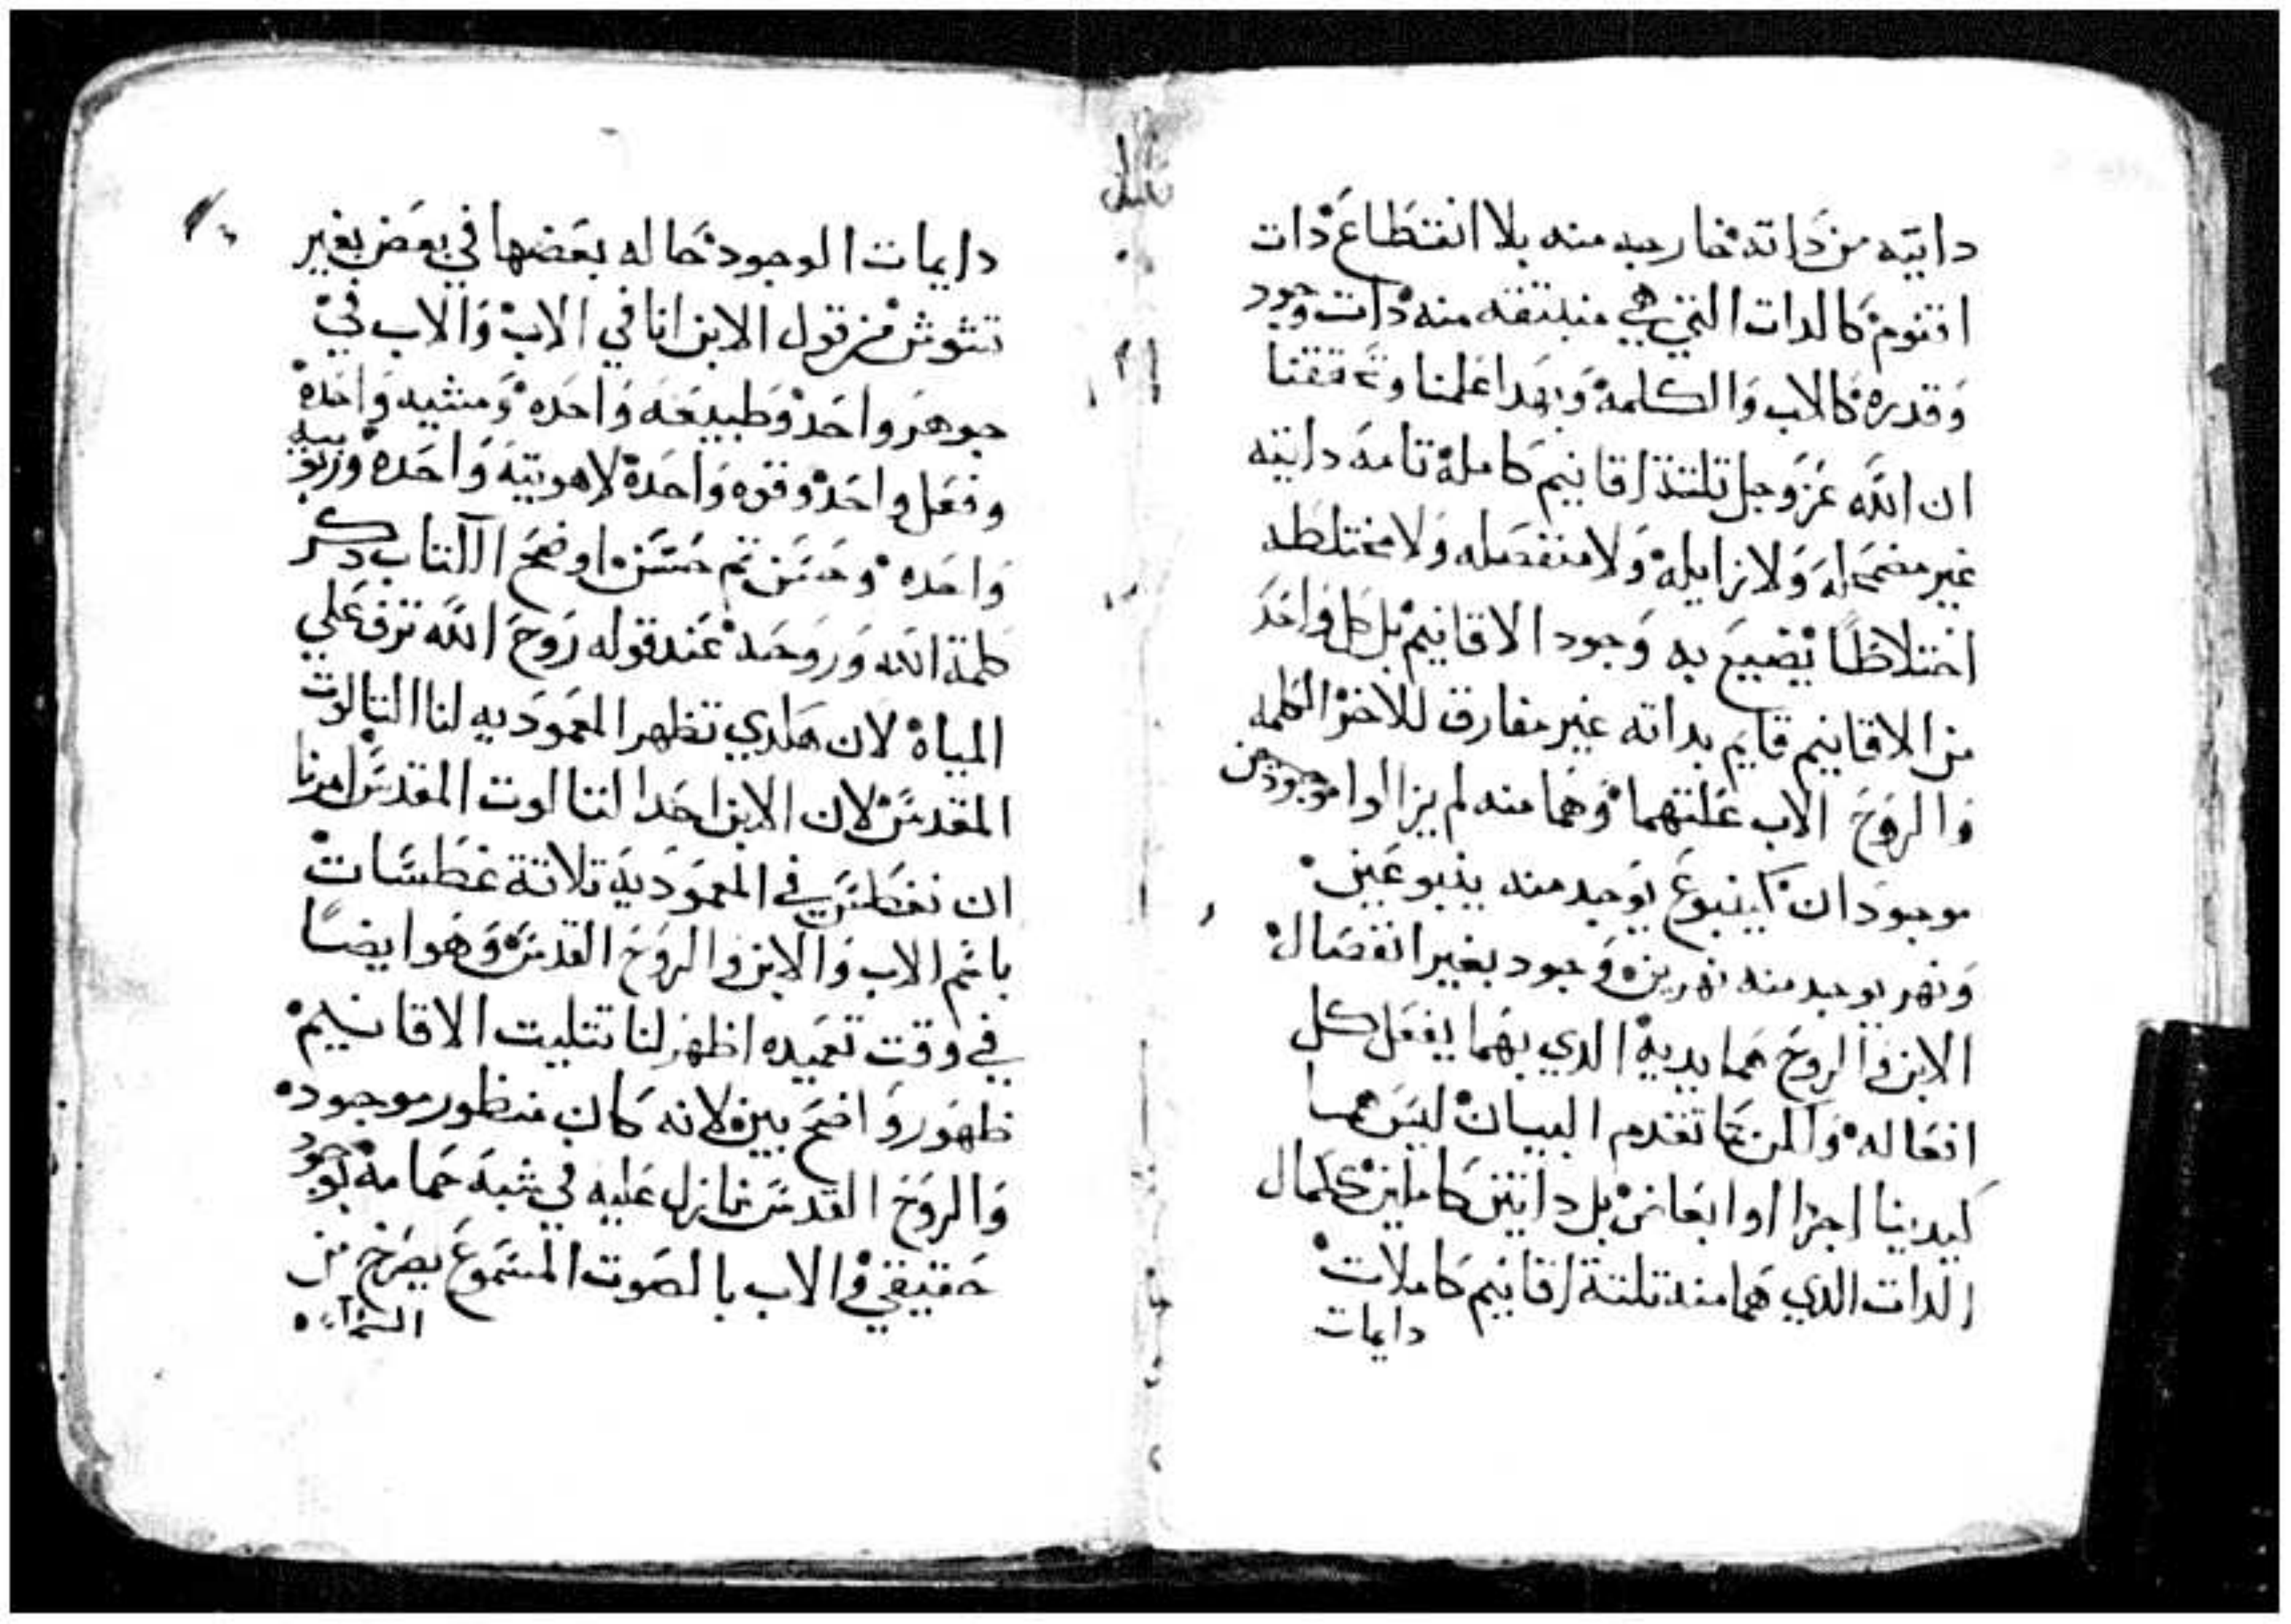 داتيه من داته خارجه منه بلا انقطاع دات
اقنوم كالدات التي هي منبتقه منه دات وجود
وقدره كالاب والكلمه وبهدا علمنا وتحققنا
ان الله عز وجل تلتة اقانيم كاملة تامه داتيه
غير مضمحله ولا زايله ولا منفصله ولا مختلطه
اختلاطا يضيع به وجود الاقانيم بل كل واحد
من الاقانيم قايم بداته غير مفارق للاخر الكلمه
والروح الاب علتهما وهما منه لم يزالوا موجودين
موجودان كينبوع يوجد منه ينبوعين
ونهر يوجد منه نهرين وجود بغير انفصال
الابن والروح هما يديه الدي بهما يفعل كل
افعاله تقدم البيان ليس هما
كيدينا اجزا او ابعاض بل داتين كاملين كمال
الدات الدي هما منه تلتة اقانيم كاملات
دايمات
دايمات الوجود حاله بعضها في بعض بغير
تشوش من قول الابن انا في الاب والاب في
جوهر واحد وطبيعه واحده ومشيه واحده
وفعل واحد وقوه واحدة لاهوتيه واحده وربوبيه
واحده وحسن تم حسن اوضح الكتاب دكر
كلمة الله وروحه عند قوله روح الله ترف علي
المياه لان هكدي تظهر المعموديه لنا التالوت
المقدس لان الابن احد التالوت المقدس امرنا
ان نغطس في المعموديه تلاتة غطسات
باسم الاب والابن والروح القدس وهو ايضا
في وقت تعميده اظهر لنا تتليت الاقانيم
ظهور واضح بين لانه كان منظور موجود
والروح القدس نازل عليه في شبه حمامه بوجود
حقيقي والاب بالصوت المسموع يصرخ من
السما